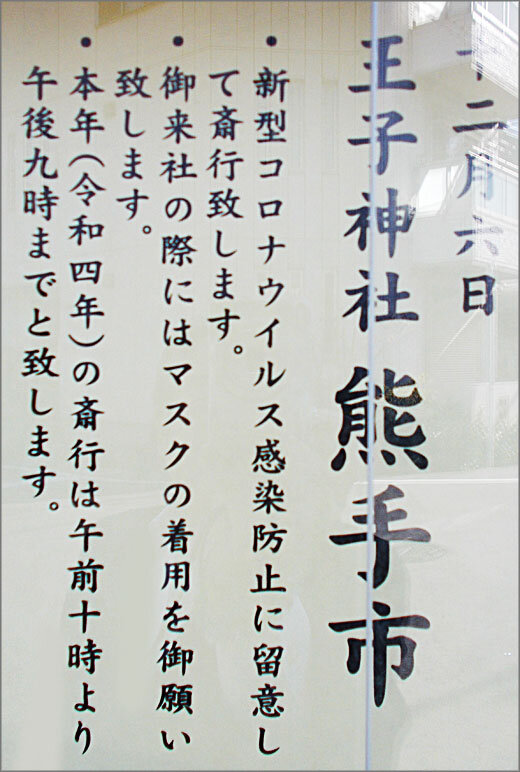 十二月六日
王子神社 熊手市
・新型コロナウイルス感染防止に留意し
て斎行致します。
・御来社の際にはマスクの着用を御願い
致します。
・本年(令和四年)の斎行は午前十時より
午後九時までと致します。